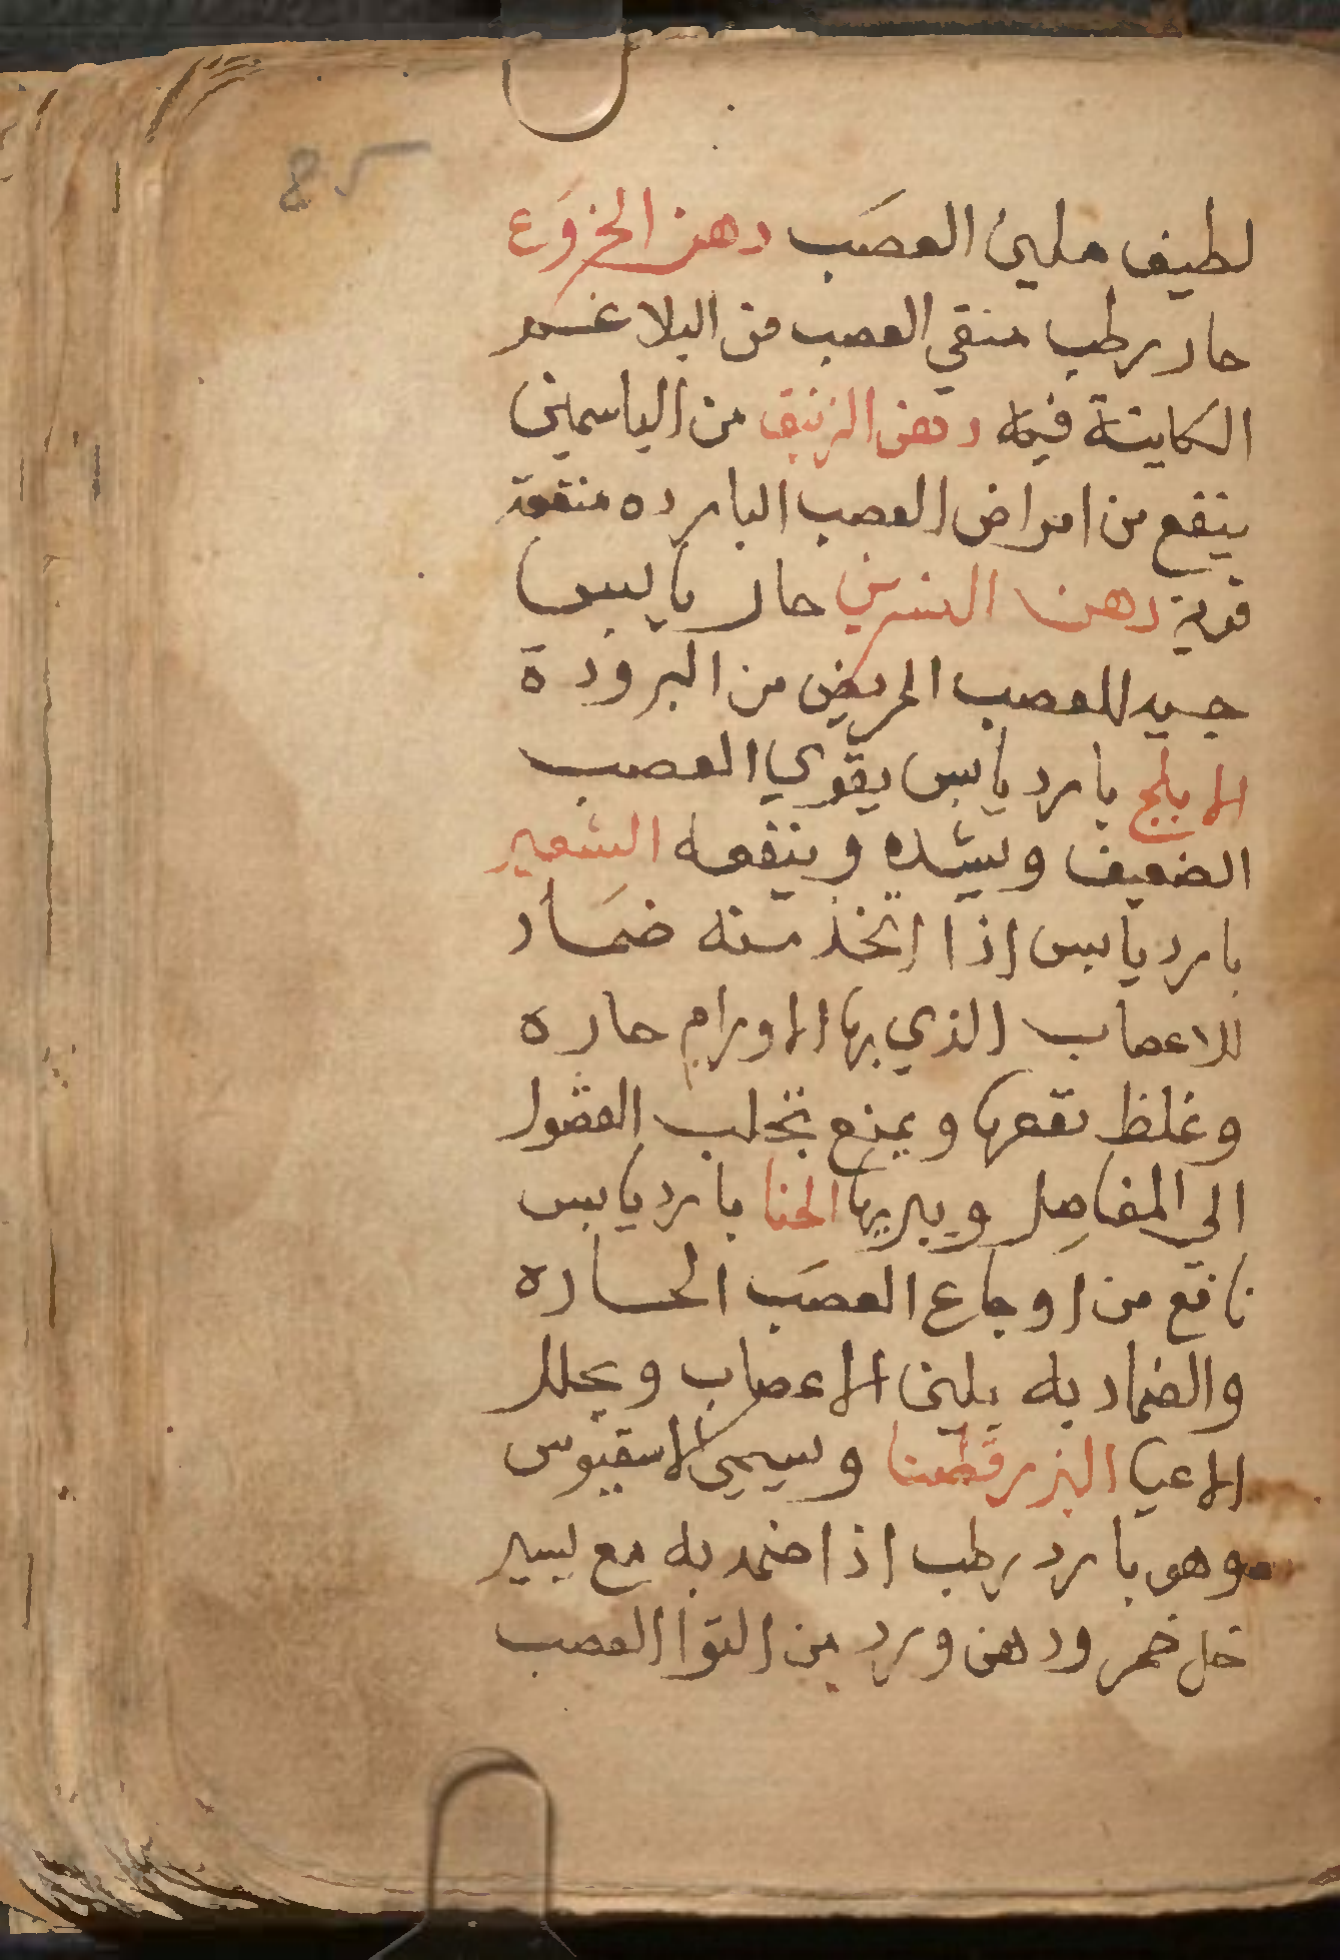 85
لطيف ملين العصَب دهن الخروَع
حار رطب منقي العصب من البلاغم
الكاينة فيه دهن الزنبق من الياسمين
ينفع من امراض العصب البارده منفعة
قوية دهن النسرين حار يابس
جيد للعصب المريض من البرودة
الاملج بارد يابس يقوي العصب
الضعيف ويشده وينفعه الشعير
بارد يابس اذا اتخذ منه ضماد
للاعصاب الذي بها الاورام حاره
وغلظ نفعها ويمنع تحلب الفضول
الي المفاصِل ويبريها الحنا بارد يابس
نافع من اوجاع العصَب الحاره
والضماد به يلين الاعصاب ويحلل
الاعيا البزرقطنا ويسمي الاسقيوس
وهو بارد رطب اذا ضمد به مع يسير
خل خمر ودهن ورد من التوا العصب